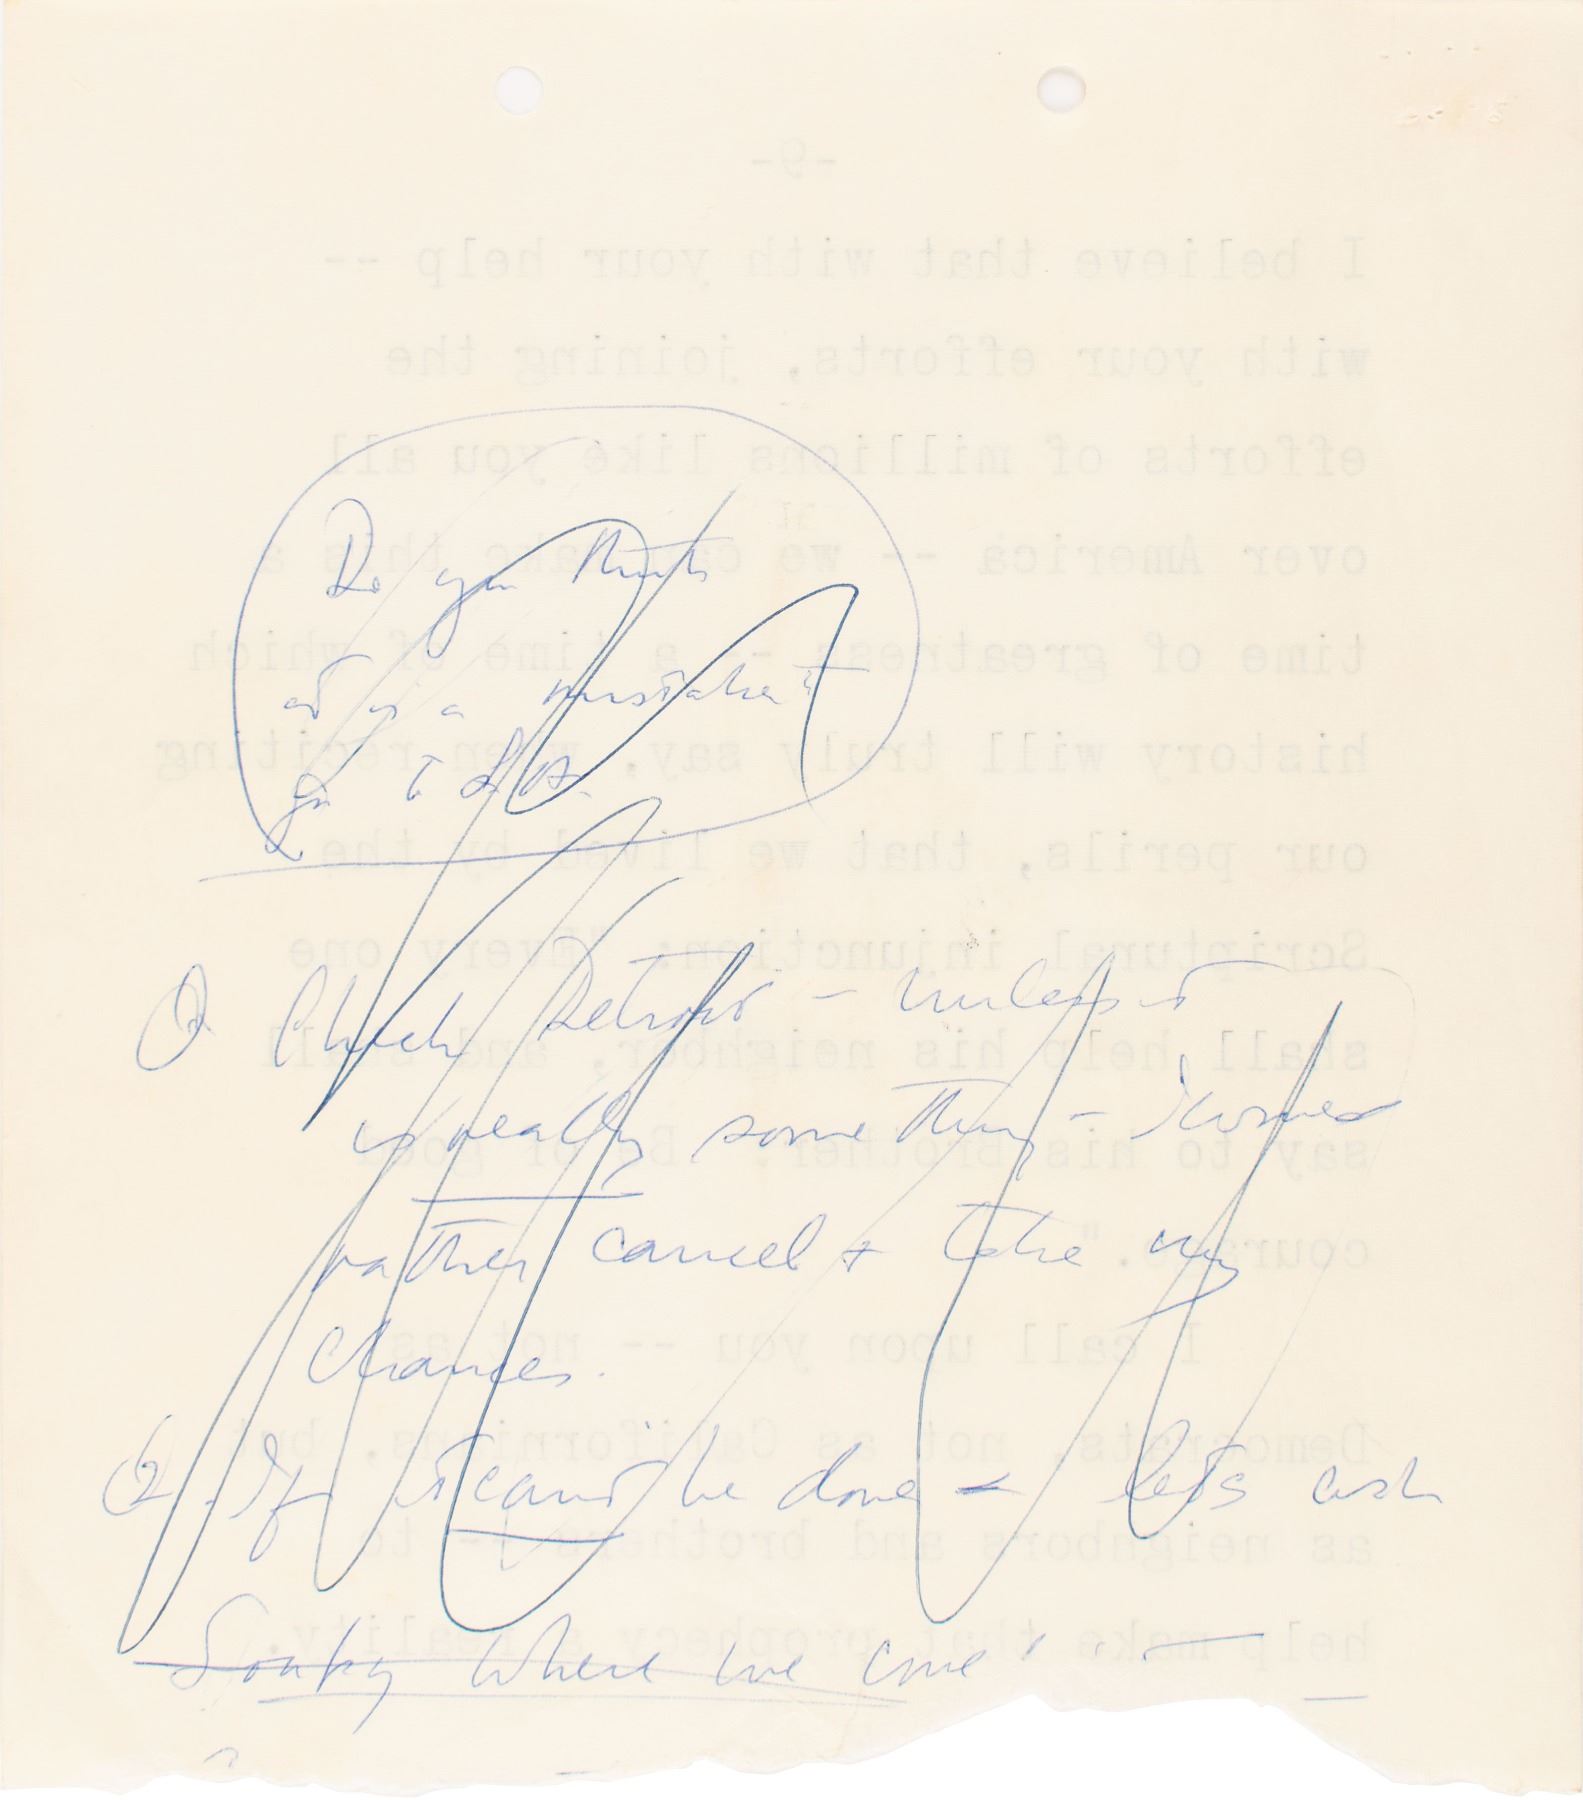 -9-
I believe that with your help --
with your efforts, joining the
efforts of millions like you all
over America -- we can make this a
time of greatness -- a time of which
history will truly say, when reciting
our perils, that we lived by the
Scriptural injunction: "Every one
shall help his neighbor, and shall
say to his brother: Be of good
courage."
I call upon you -- not as
Democrats, not as Californians, but
as neighbors and brothers -- to
help make that prophecy a reality.
Do you think
it is a mistake to
go to
① Check Detroit - unless it
is really something - I would
rather cancel & take my
chances.
② If it can't be done - lets ask
where we